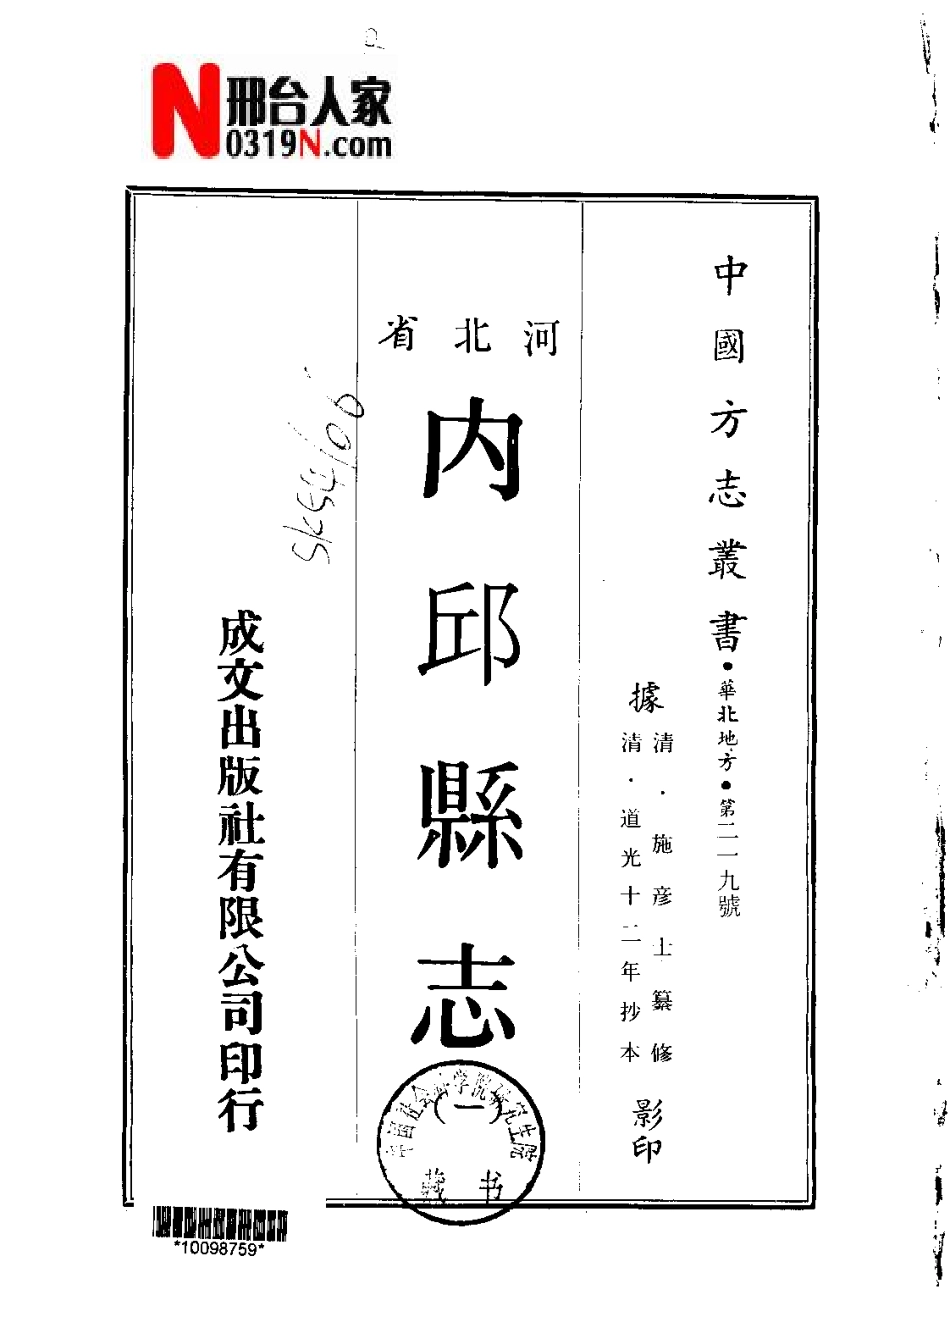 邢台人家
0319N.com
中國方志叢書·華北地方·第二一九號
據
清·施彦士纂修
清·道光十二年抄本
影印
河北省
內邱縣志
(一)
成文出版社有限公司印行
中国社会科学院研究生院
藏书
*10098759*